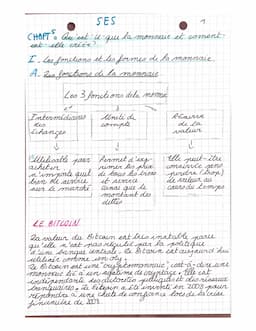 SES
1
CHAPT 5 : Qu'est ce que la monnaie et comment
est elle créée?
I. Les fonctions et les formes de la monnaie.
A. Les fonctions de la monnaie
Les 3 fonctions de la monnaie
Intermédiaire des échanges
Unité de compte
Réserve de la valeur
Utilisable pour acheter n'importe quel bien ou service sur le marché
Permet d'exprimer les prix de tous les biens et service ainsi que le montant des dettes
Elle peut être conservée sans perdre (trop) de valeur au cours du temps
LE BITCOIN
La valeur du Bitcoin est très instable parce
qu'elle n'est pas régulée par la politique
d'une banque centrale. Le Bitcoin est aujourd'hui
utilisé comme
Le Bitcoin est une "cryptomonnaie", c'est-à-dire une
monnaie liée à un système de cryptage. Elle est
indépendante des autorités publiques et des réseaux
bancaires. Le bitcoin a été inventé en 2008 pour
répondre à une chute de confiance lors de la crise
financière de